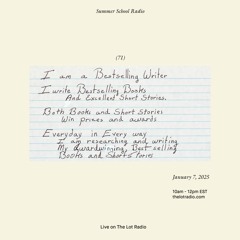 Summer School Radio
(71)
I am a Bestselling Writer
I write Bestselling Books
And Excellent Short Stories.
Both Books and Short Stories
Win prizes and awards
Everyday in Every way
I am researching and writing
My award winning, Best selling
Books and Short stories
January 7, 2025
10am - 12pm EST
thelotradio.com
Live on The Lot Radio